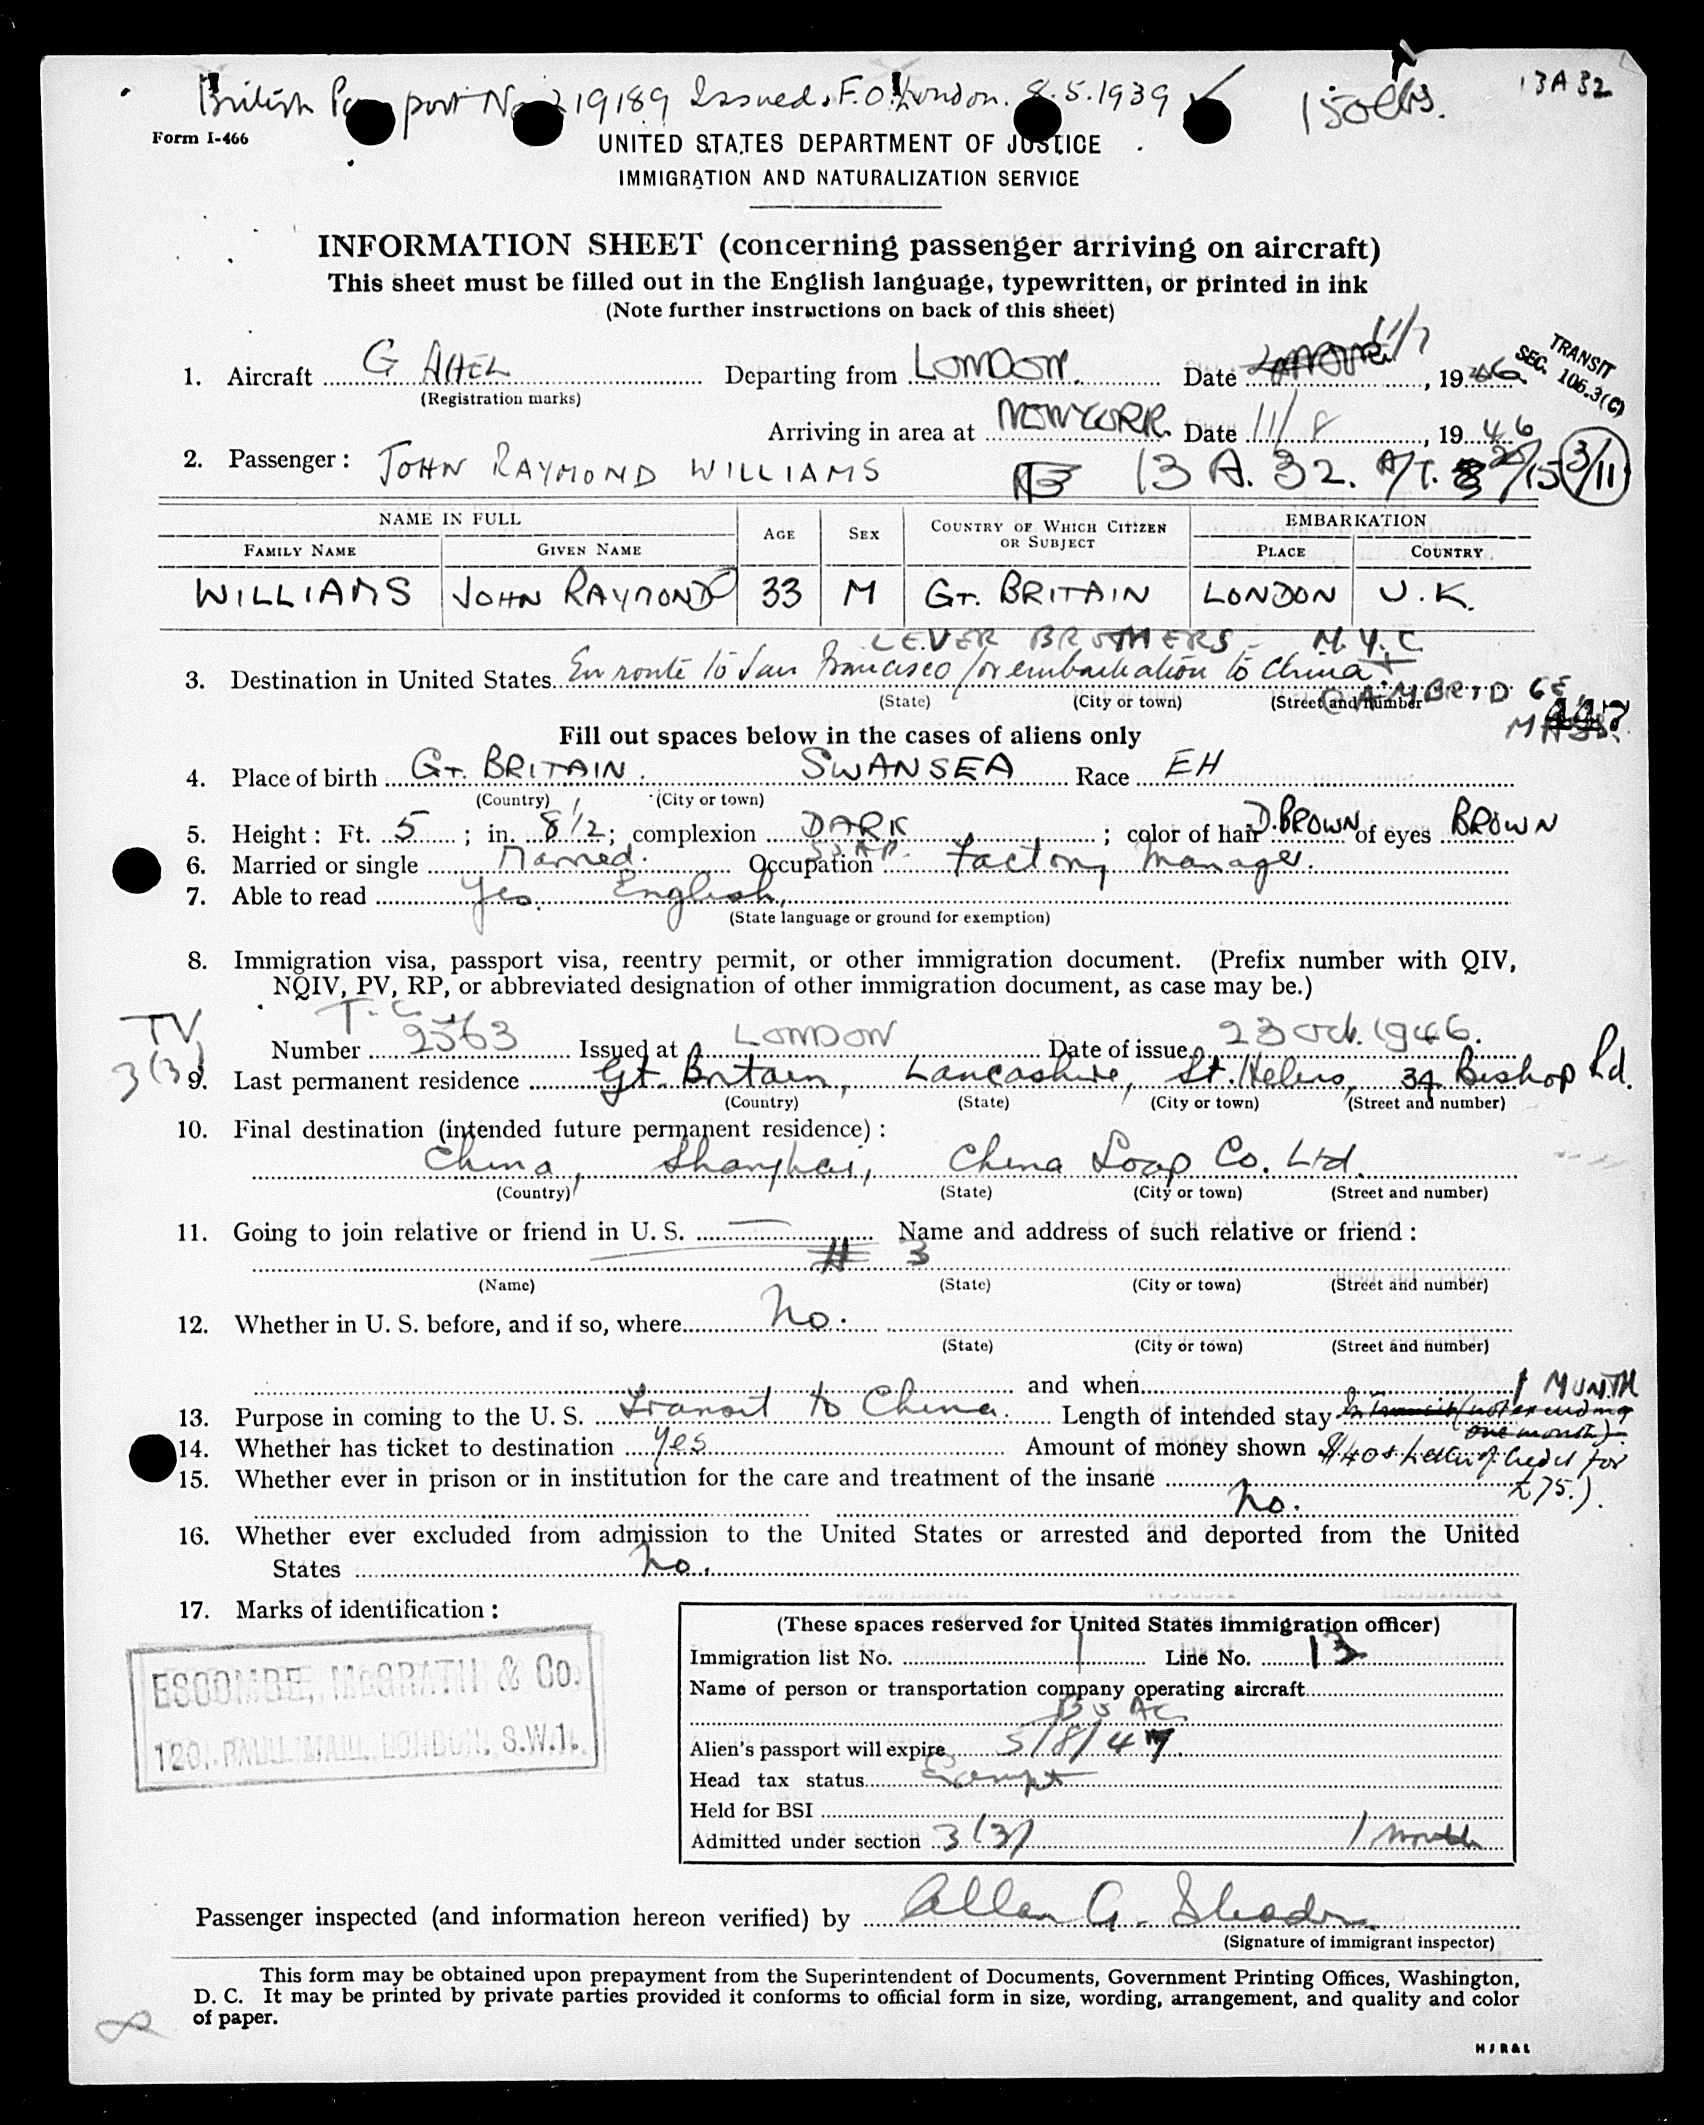 13A32
British Passport No 219189 Issued. F.O. London. 8.5.1939 150lbs.
Form I-466
UNITED STATES DEPARTMENT OF JUSTICE
IMMIGRATION AND NATURALIZATION SERVICE
INFORMATION SHEET (concerning passenger arriving on aircraft)
This sheet must be filled out in the English language, typewritten, or printed in ink
(Note further instructions on back of this sheet)
1. Aircraft G AHEL Departing from LONDON. Date 11/7, 1946
(Registration marks)
TRANSIT
SEC. 105.3(C)
Arriving in area at NEW YORK. Date 11/8, 1946
2. Passenger: JOHN RAYMOND WILLIAMS 13 A. 32. A/T. 25/15 3/11
NAME IN FULL AGE SEX COUNTRY OF WHICH CITIZEN OR SUBJECT EMBARKATION
FAMILY NAME GIVEN NAME PLACE COUNTRY
WILLIAMS JOHN RAYMOND 33 M GT. BRITAIN LONDON U.K.
LEVER BROTHERS - N.Y.C.
3. Destination in United States En route to San Francisco for embarkation to China +
(State) (City or town) (Street and number)
CAMBRIDGE,
MASS.
447
Fill out spaces below in the cases of aliens only
4. Place of birth GT. BRITAIN. SWANSEA Race EH
(Country) (City or town)
5. Height: Ft. 5; in. 8 1/2; complexion DARK; color of hair D.BROWN of eyes BROWN
6. Married or single Married. Occupation Factory Manager.
7. Able to read Yes. English,
(State language or ground for exemption)
8. Immigration visa, passport visa, reentry permit, or other immigration document. (Prefix number with QIV,
NQIV, PV, RP, or abbreviated designation of other immigration document, as case may be.)
TV T.C.
Number 2563 Issued at LONDON Date of issue 23 Oct. 1946.
3(3)
9. Last permanent residence Gt. Britain, Lancashire, St. Helens, 34 Bishop Rd.
(Country) (State) (City or town) (Street and number)
10. Final destination (intended future permanent residence):
China, Shanghai, China Soap Co. Ltd.
(Country) (State) (City or town) (Street and number)
11. Going to join relative or friend in U. S. Name and address of such relative or friend:
# 3
(Name) (State) (City or town) (Street and number)
12. Whether in U. S. before, and if so, where No.
(State) (City or town) (Street and number)
and when 1 MONTH
13. Purpose in coming to the U. S. Transit to China. Length of intended stay In Transit (not exceeding
one month).
14. Whether has ticket to destination Yes Amount of money shown $40 + Letter of Credit for
£75.).
15. Whether ever in prison or in institution for the care and treatment of the insane
No.
16. Whether ever excluded from admission to the United States or arrested and deported from the United
States No.
17. Marks of identification:
ESCOMBE, McGRATH & Co.
120, PALL MALL, LONDON, S.W.1.
(These spaces reserved for United States immigration officer)
Immigration list No. 1 Line No. 13
Name of person or transportation company operating aircraft
BOAC
Alien's passport will expire 5/8/47
Head tax status Exempt
Held for BSI
Admitted under section 3(3) 1 month
Passenger inspected (and information hereon verified) by Allan G. Shader
(Signature of immigrant inspector)
This form may be obtained upon prepayment from the Superintendent of Documents, Government Printing Offices, Washington,
D. C. It may be printed by private parties provided it conforms to official form in size, wording, arrangement, and quality and color
of paper.
HJR&L